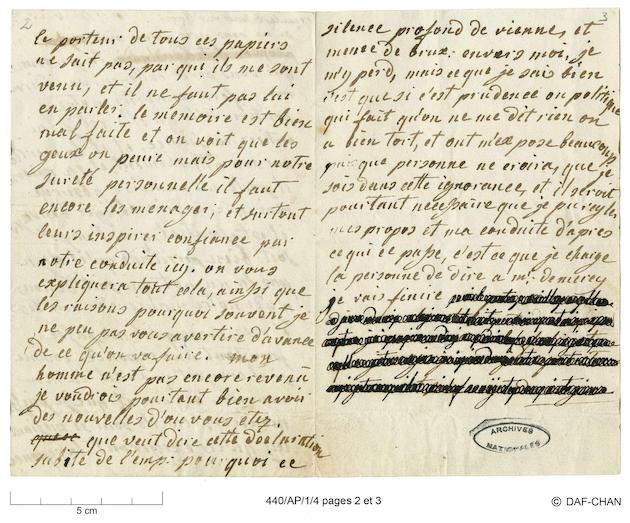 2
le porteur de tous ces papiers
ne sait pas, par qui ils me sont
venu, et il ne faut pas lui
en parler. le memoire est bien
mal faite et on voit que les
geux on peure mais pour notre
sureté personnelle il faut
encore les menager, et surtout
leurs inspirer confiance par
notre conduite icy. on vous
expliquera tout cela, ainsi que
les raisons pourquoi souvent je
ne peu pas vous avertire d'avance
de ce qu'on va faire. mon
homme n'est pas encore revenu
je voudrois pourtant bien avoir
des nouvelles d'ou vous etez.
que veut dire cette declaration
subite de l'emp: pourquoi ce
3
silence profond de vienne, et
meme de brux: envers moi, je
m'y perd, mais ce que je sais bien
c'est que si c'est prudence ou politique
qui fait qu'on ne me dit rien on
a bien tort, et ont m'expose beaucoup
puisque personne ne croira, que je
sois dans cette ignorance, et il seroit
pourtant necessaire que je puisse regler
mes propos et ma conduite d'apres
ce qui ce passe, c'est ce que je charge
la personne de dire a mr. de merci.
je vais finire
ARCHIVES
NATIONALES
5 cm
440/AP/1/4 pages 2 et 3
© DAF-CHAN